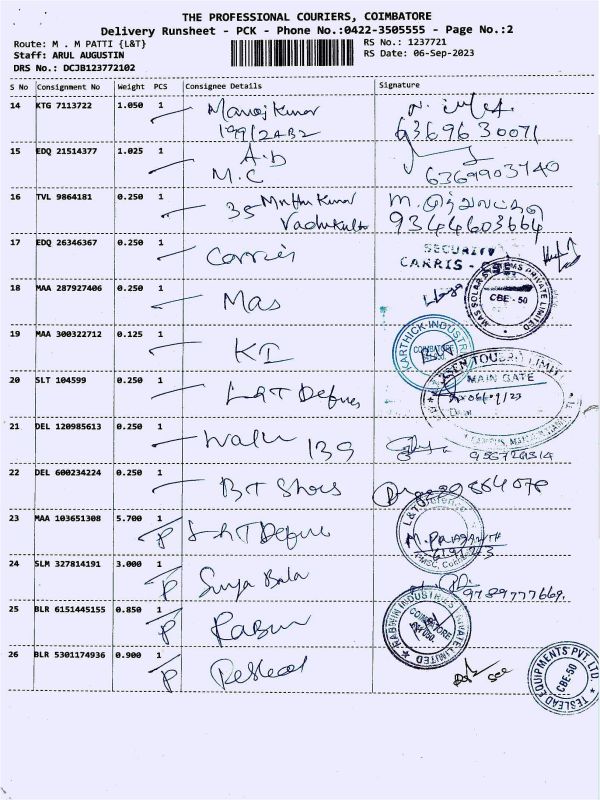 THE PROFESSIONAL COURIERS, COIMBATORE
Delivery Runsheet - PCK - Phone No.:0422-3505555 - Page No.:2
Route: M . M PATTI {L&T}
RS No.: 1237721
Staff: ARUL AUGUSTIN
RS Date: 06-Sep-2023
DRS No.: DCJB123772102
S No Consignment No Weight PCS Consignee Details Signature
14 KTG 7113722 1.050 1 Manoj Kumar
6369630071
15 EDQ 21514377 1.025 1 A.D
M.C 6369903740
16 TVL 9864181 0.250 1 35 Muthu Kumar
9344603664
17 EDQ 26346367 0.250 1 Carries SECURITY
CARRIS
18 MAA 287927406 0.250 1 Mas MAS SOLAR SYSTEMS PRIVATE LIMITED CBE - 50
19 MAA 300322712 0.125 1 KI KARTHICK INDUSTR COIMBATORE
20 SLT 104599 0.250 1 L&T Defnes MAIN GATE
06/09/23
21 DEL 120985613 0.250 1 139
22 DEL 600234224 0.250 1 BT Shoes
23 MAA 103651308 5.700 1 P L&T Defnes L&T Defence
M. PRASANTH
24 SLM 327814191 3.000 1 P Surya Bala 9789777669.
25 BLR 6151445155 0.850 1 P Rabwin RABWIN INDUSTRIES PRIVATE LIMITED COIMBATORE
26 BLR 5301174936 0.900 1 PTeslead TESLEAD EQUIPMENTS PVT. LTD. CBE-50